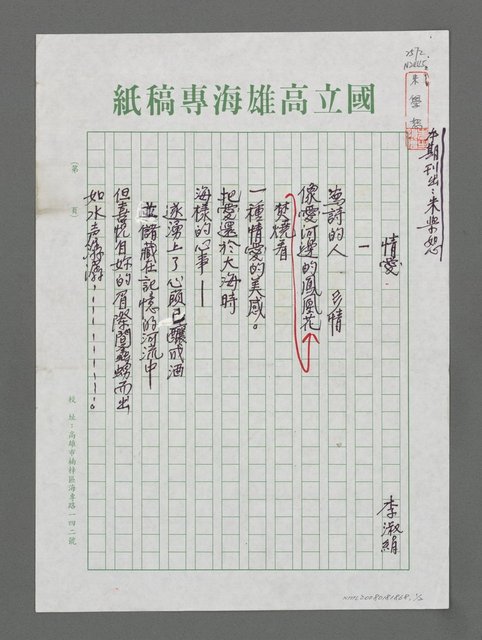 國立高雄海專稿紙
2572
朱學恕
本期刊出：朱學恕
情愛
李淑絹
一
寫詩的人 多情
像愛河邊的鳳凰花
焚燒着
一種情愛的美感。
把愛還於大海時
海樣的心事——
遂湧上了心頭已釀成酒
並儲藏在記憶的河流中
但喜悅自妳的眉際間蠢蠕而出
如水声潺潺，…………。
（第 頁）
校 址：高雄市楠梓區海專路一四二號